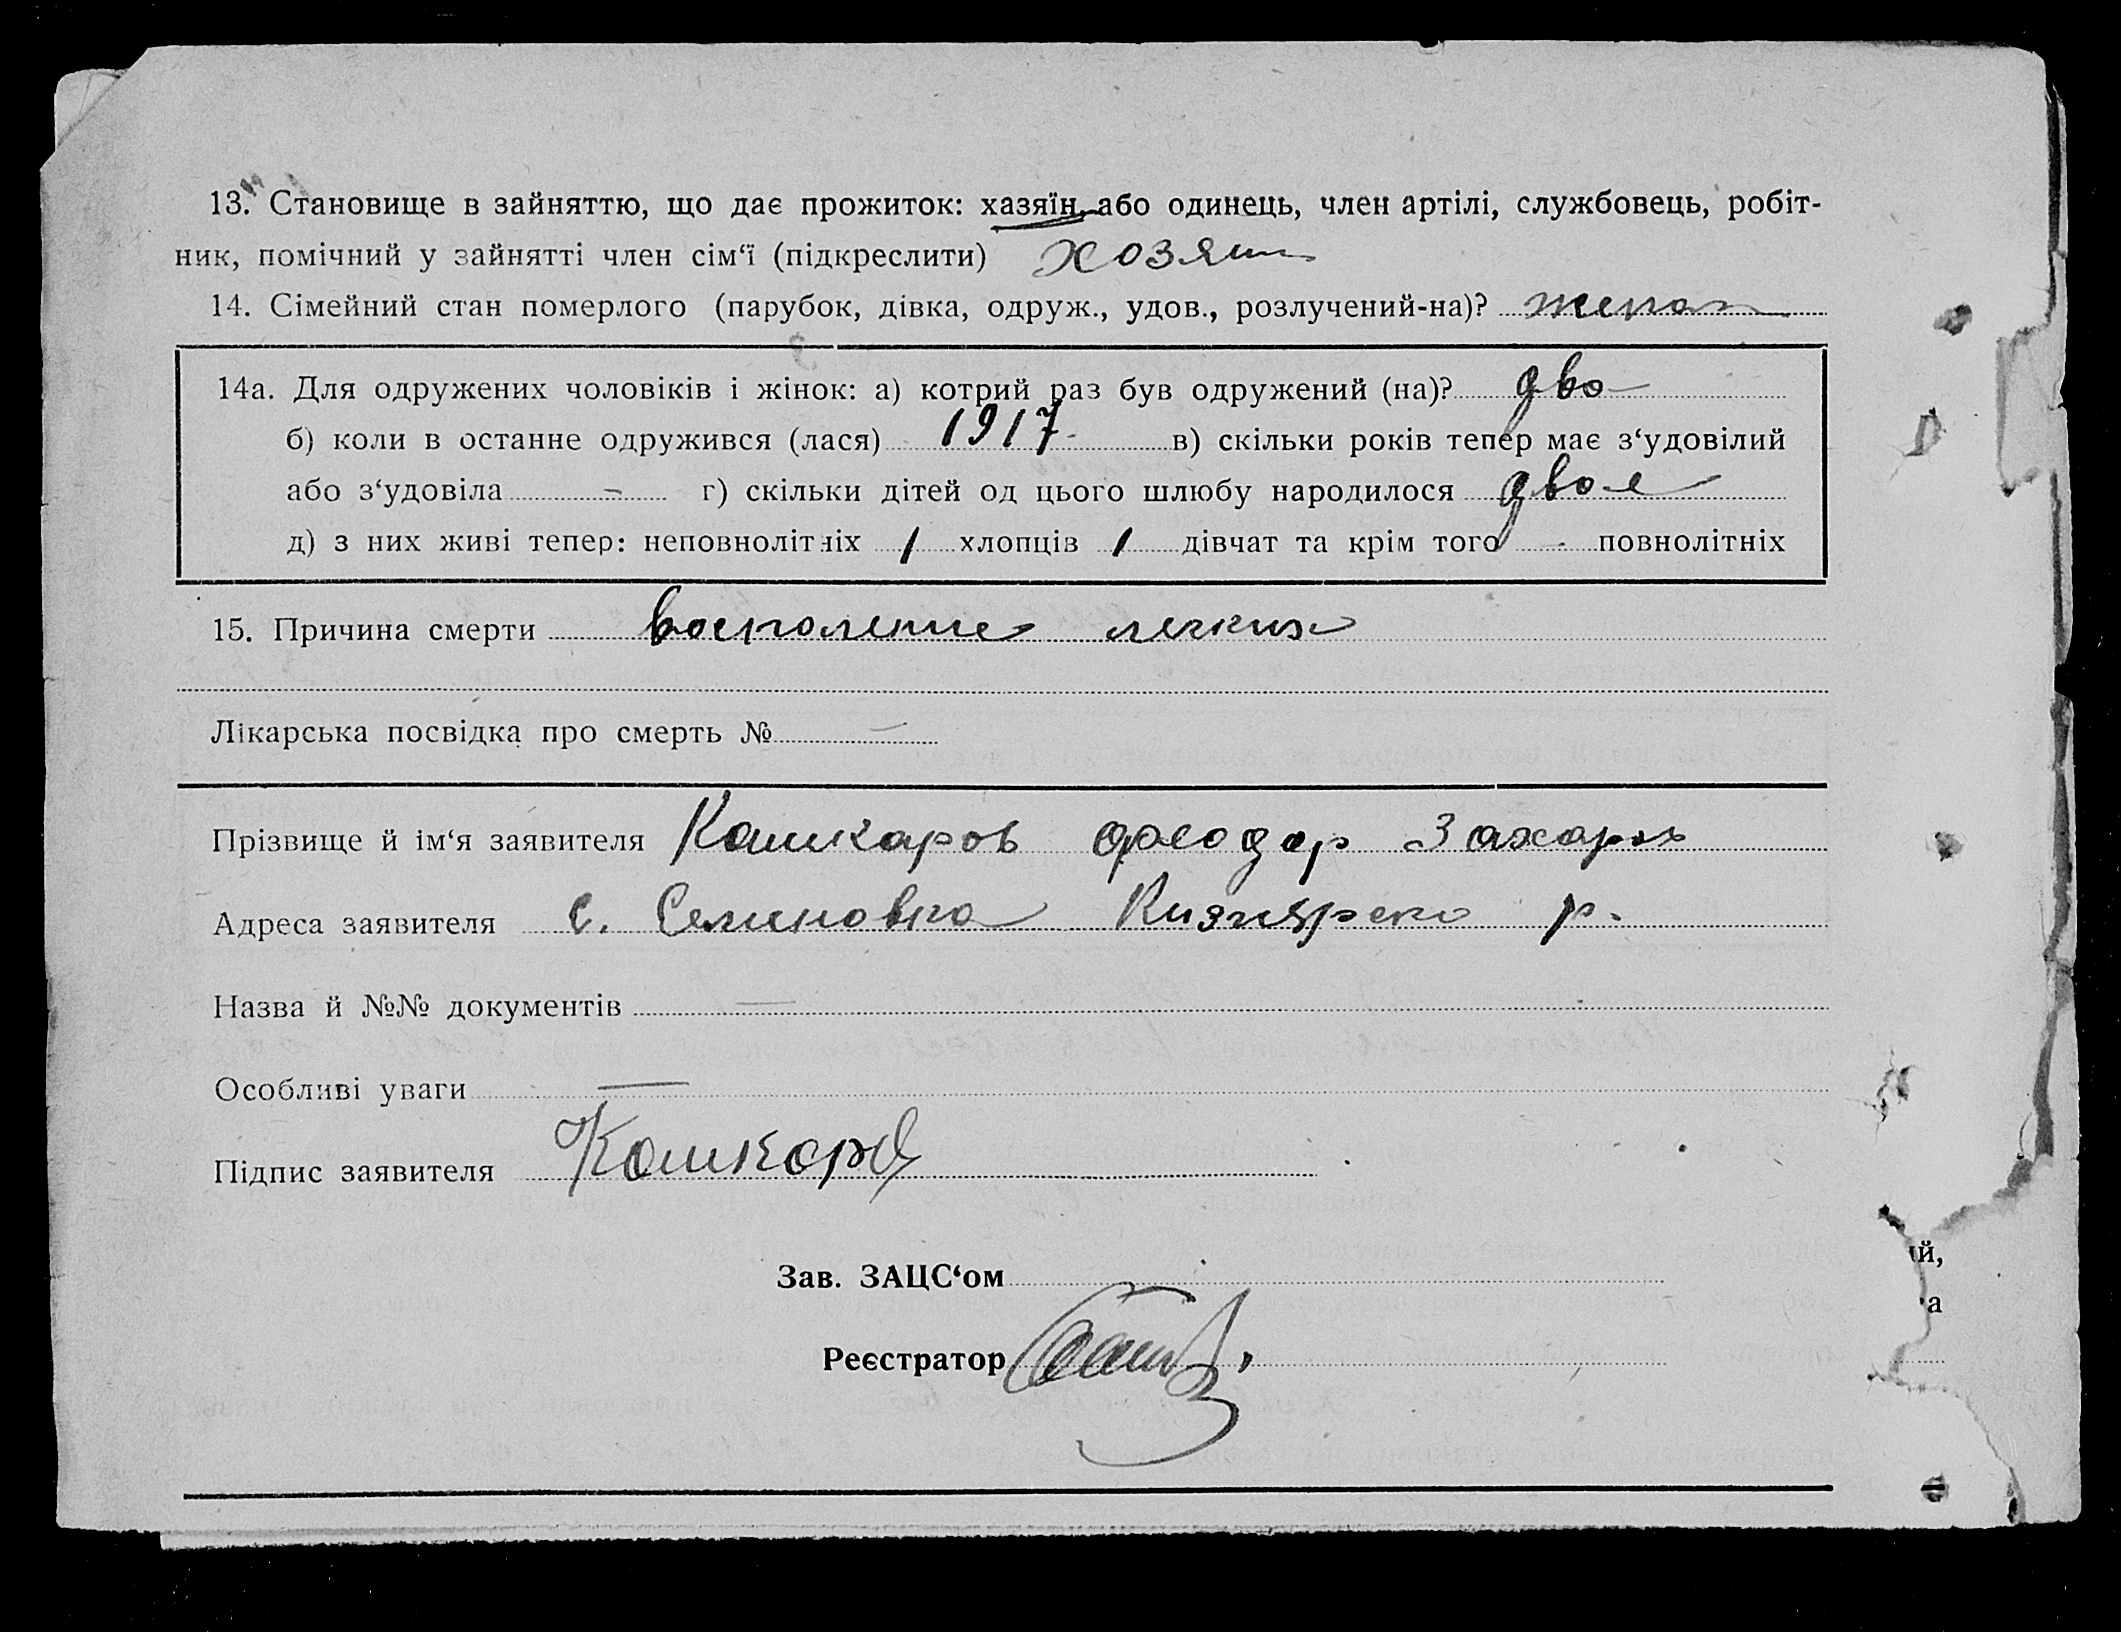 13. Становище в зайняттю, що дає прожиток: хазяїн або одинець, член артілі, службовець, робіт-
ник, помічний у зайнятті член сім‘ї (підкреслити) хозяин
14. Сімейний стан померлого (парубок, дівка, одруж., удов., розлучений-на)? женат
14а. Для одружених чоловіків і жінок: а) котрий раз був одружений (на)? два
б) коли в останне одружився (лася) 1917 в) скільки років тепер має з‘удовілий
або з‘удовіла - г) скільки дітей од цього шлюбу народилося двое
д) з них живі тепер: неповнолітніх 1 хлопців 1 дівчат та крім того - повнолітніх
15. Причина смерти воспаление легких
Лікарська посвідка про смерть № —
Прізвище й ім‘я заявителя Кашкаров Феодор Захаров
Адреса заявителя с. Семеновка р.
Назва й №№ документів —
Особливі уваги —
Підпис заявителя Кашкаров
Зав. ЗАЦС‘ом
Реєстратор
й,
а